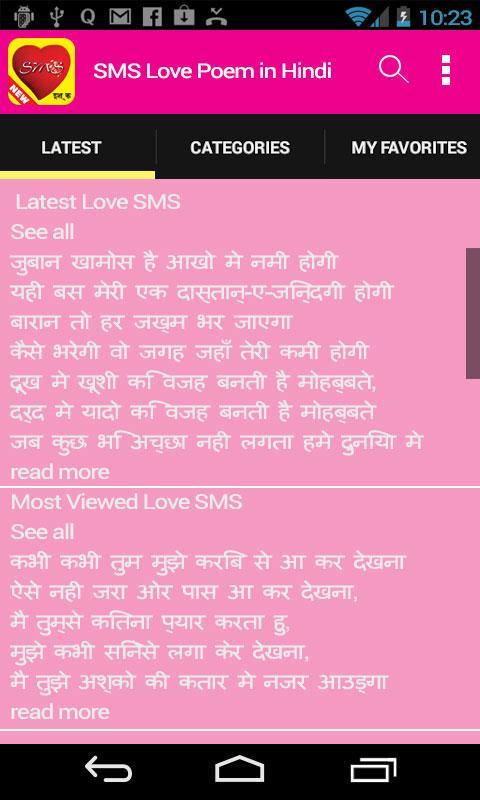 10:23
SMS
NEW
इश्क
SMS Love Poem in Hindi
LATEST CATEGORIES MY FAVORITES
Latest Love SMS
See all
जुबान खामोस है आखो मे नमी होगी
यही बस मेरी एक दास्तान्-ए-जिन्दगी होगी
बारान तो हर जख्म भर जाएगा
कैसे भरेगी वो जगह जहाँ तेरी कमी होगी
दूख मे खूशी कि वजह बनती है मोहब्बते,
दर्द मे यादो कि वजह बनती है मोहब्बते
जब कुछ भि अच्छा नही लगता हमे दुनिया मे
read more
Most Viewed Love SMS
See all
कभी कभी तुम मुझे करिब से आ कर देखना
ऐसे नही जरा ओर पास आ कर देखना,
मै तुम्से कितना प्यार करता हु,
मुझे कभी सिनेसे लगा केर देखना,
मै तुझे अश्को की कतार मे नजर आउड्गा
read more